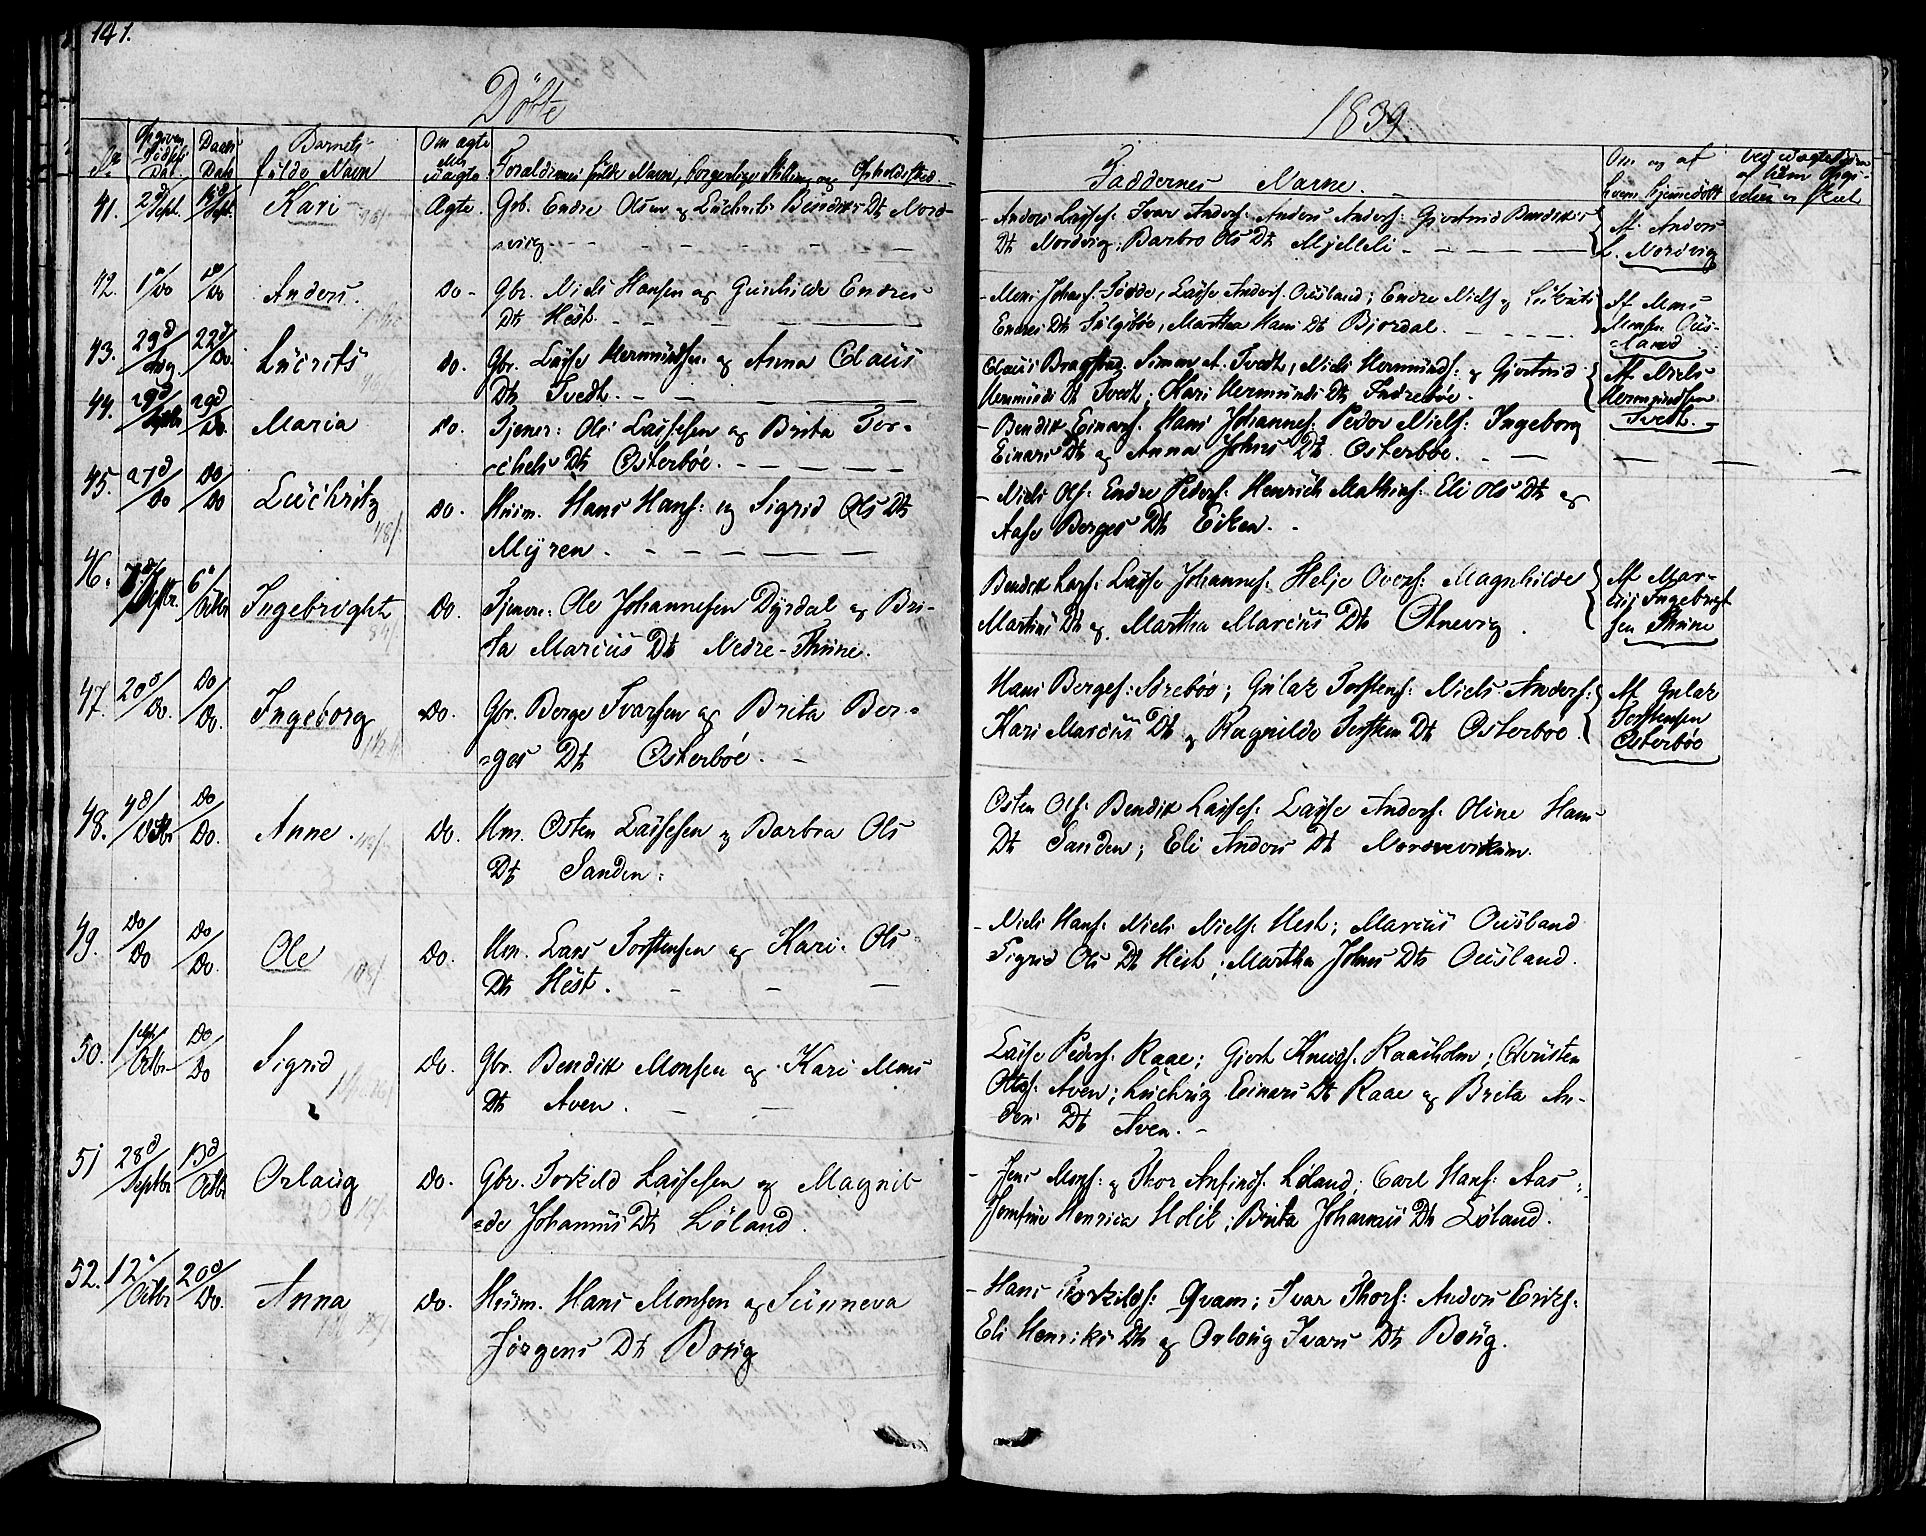 141.
Döbte
1839.
No
Daabs
Dat
Barnets
fulde Navn
Om ægte
eller
uægte
Forældrenes fulde Navn, borgerlige Stilling og Opholdssted.
Faddernes Navne.
Om og af
hvem hjemedöbt
41. 2d/Sept. Sept. Kari Ægte. Gbr. Endre Olsen og Lüchrits Bendiks Dt Nord-
vig
- Anders Lassesf: Ivar Andersf: Anders Andersf: Giertrud Bendiks
Dt Nordvig; Barbro Ols Dt Mjelleli
Af Anders
L. Nordvig
42. 1/Do Do/Do Anders. Do- Gbr. Niels Hansen og Gunhilde Endres
Dt Hest.
- Mons Johansf: Lasse Andersf. Ouisland; Endre Nielsf og
Endres Dt Martha Hans Dt Bjordal.
Af Mons
Monsen Ouis-
land
43. 29d/Aug 22d/Do. Lücrits Do. Gbr. Lasse Hermundsen og Anna Claus
Dt Tvedt.
Claus Simon Tvedt, Niels Hermundsf: og Giertrud
Hermunds Dt Tvedt; Kari Hermunds Dt Indrebøe.
Af Niels
Hermundsen
Tvedt.
44. 29d/Septbr 29d/Do. Maria Do. Tjener: Ols Lassesen og Brita Tor-
chels Dt Osterbøe.
- Bendik Einarsf. Hans Johannesf: Peder Nielsf: Ingeborg
Einars Dt og Anna Johns Dt. Osterbøe.
45. 27d/Do Do/Do Lüchritz Do. Huüsm. Hans Hansf: og Sigrid Ols Dt
Myren.
- Niels Olsf: Endre Pedersf: Henrich Mathiasf: Eli Ols Dt og
Aase Berges Dt Eiken.
46. /Septbr. 6/Octbr Ingebright Do. Tjener: Ole Johannesen Dyrdal og Bri-
ta Marcus Dt Nedre-Thüne.
Bendik Larsf: Lasse Johannesf: Helje Oversf: Magnhilde
Martins Dt og Martha Marcus Dt Otnevig.
Af Mar-
cus Ingebrigt-
sen Thüne
47. 20d/Do. Do/Do. Ingeborg Do. Gbr. Berge Ivarsen og Brita Ber-
ges Dt Osterbøe.
Hans Bergesf: Sörebøe; Gulak Torstensf: Niels Andersf:
Kari Marcus Dt og Ragnilde Torsten Dt Osterboe.
Af Gulak
Torstensen
Osterbøe
48. 4d/Octbr Do/Do. Anne. Do. Um. Osten Lassesen og Barbra Ols
Dt Sanden.
Osten Olsf: Bendik Lassesf: Lasse Andersf: Oline Hans
Dt Sanden; Eli Anders Dt
49. Do/Do Do/Do. Ole Do. Um. Lars Torstensen og Kari Ols-
Dt Hest.
- Niels Hansf: Niels Nielsf: Hest; Marcus Ouisland
Sigrid Ols Dt Hest; Martha Johns Dt Ouisland.
50. 1/Octbr Do/Do Sigrid Do. Gbr. Bendik Monsen og Kari Mons
Dt Aven.
Lasse Pedersf: Raae; Giert Knudsf: Raaeholm;
Aven; Lüchrig Einars Dt Raae og Brita An-
ders Dt Aven.
51 28d/Septbr 13d/Octbr Orlaug Do. Gbr. Torkild Lassesen og Magnil-
de Johannis Dt Løland.
- Jens Monsf: og Thor Anfindsf: Løland; Carl Hansf: Aas-
Josefine Henrica Holck; Brita Johannis Dt Løland.
52. 12/Octbr 20d/Do. Anna Do. Huüsm. Hans Monsen og Sunneva
Jörgens Dt Borüg
- Hans Torkildsf: Qvam; Ivar Thorsf: Anders Eriksf:
Eli Henriks Dt og Orlaug Ivars Dt Borüg.